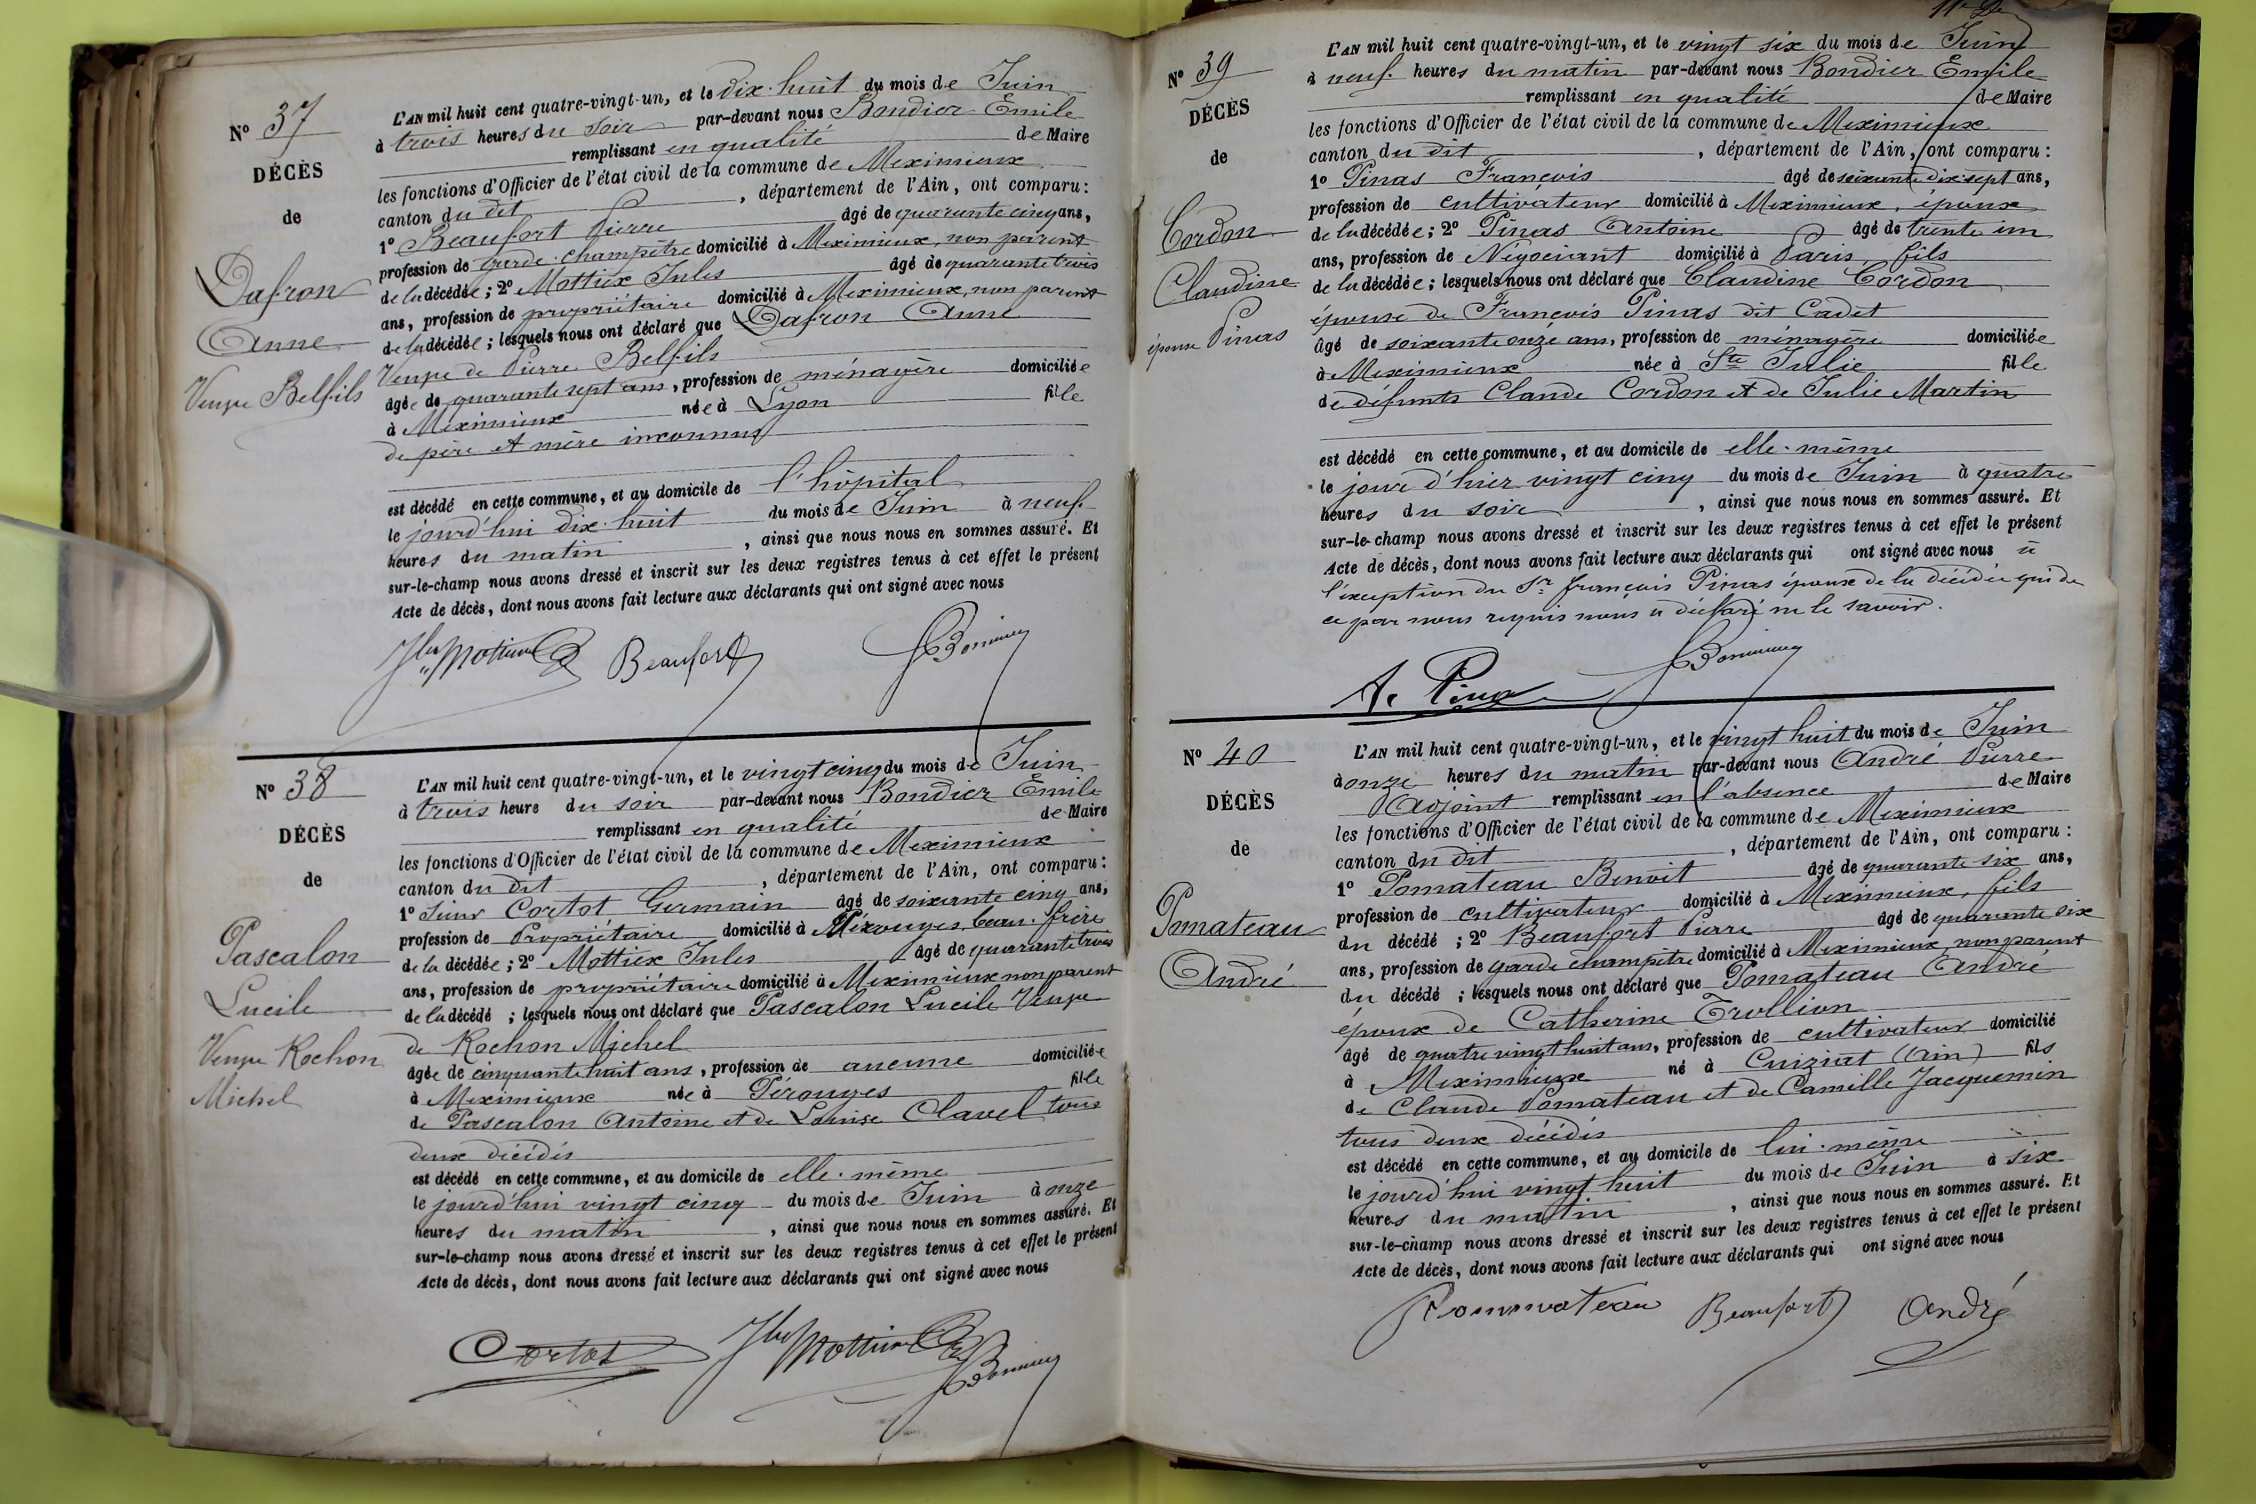 N° 37
DÉCÈS
de
Dafron
Anne
Veuve Belfils
L'AN mil huit cent quatre-vingt-un, et le dix-huit du mois de Juin
à trois heures du soir par-devant nous Bondier Emile
remplissant en qualité de Maire
les fonctions d'Officier de l'état civil de la commune de Meximieux
canton du dit, département de l'Ain, ont comparu :
1° Beaufort Pierre âgé de quarante cinq ans,
profession de garde-champêtre domicilié à Meximieux, non parent
de la décédée ; 2° Mottiex Jules âgé de quarante trois
ans, profession de propriétaire domicilié à Meximieux, non parent
de la décédée ; lesquels nous ont déclaré que Dafron Anne
Veuve de Pierre Belfils
âgée de quarante sept ans, profession de ménagère domiciliée
à Meximieux née à Lyon fille
de père et mère inconnus
est décédé en cette commune, et au domicile de l'hôpital
le jourd'hui dix-huit du mois de Juin à neuf
heures du matin, ainsi que nous nous en sommes assuré. Et
sur-le-champ nous avons dressé et inscrit sur les deux registres tenus à cet effet le présent
Acte de décès, dont nous avons fait lecture aux déclarants qui ont signé avec nous
Beaufort
N° 38
DÉCÈS
de
Pascalon
Lucile
Veuve Rochon
Michel
L'AN mil huit cent quatre-vingt-un, et le vingt cinq du mois de Juin
à trois heure du soir par-devant nous Bondier Emile
remplissant en qualité de Maire
les fonctions d'Officier de l'état civil de la commune de Meximieux
canton du dit, département de l'Ain, ont comparu :
1° Sieur Cortot Germain âgé de soixante cinq ans,
profession de Propriétaire domicilié à Pérouges, beau-frère
de la décédée ; 2° Mottiex Jules âgé de quarante trois
ans, profession de propriétaire domicilié à Meximieux non parent
de la décédé ; lesquels nous ont déclaré que Pascalon Lucile Veuve
de Rochon Michel
âgée de cinquante huit ans, profession de aucune domiciliée
à Meximieux née à Pérouges fille
de Pascalon Antoine et de Louise Clavel tous
deux décédés
est décédé en cette commune, et au domicile de elle-même
le jourd'hui vingt cinq du mois de Juin à onze
heures du matin, ainsi que nous nous en sommes assuré. Et
sur-le-champ nous avons dressé et inscrit sur les deux registres tenus à cet effet le présent
Acte de décès, dont nous avons fait lecture aux déclarants qui ont signé avec nous
Cortot
N° 39
DÉCÈS
de
Cordon
Claudine
épouse Pinas
L'AN mil huit cent quatre-vingt-un, et le vingt six du mois de Juin
à neuf heures du matin par-devant nous Bondier Emile
remplissant en qualité de Maire
les fonctions d'Officier de l'état civil de la commune de Meximieux
canton du dit, département de l'Ain, ont comparu :
1° Pinas François âgé de soixante dix-sept ans,
profession de cultivateur domicilié à Meximieux, époux
de la décédée ; 2° Pinas Antoine âgé de trente un
ans, profession de Négociant domicilié à Paris, fils
de la décédée ; lesquels nous ont déclaré que Claudine Cordon
épouse de François Pinas dit Cadet
âgé de soixante onze ans, profession de ménagère domiciliée
à Meximieux née à Ste Julie fille
de défunts Claude Cordon et de Julie Martin
est décédé en cette commune, et au domicile de elle-même
le jour d'hier vingt cinq du mois de Juin à quatre
heures du soir, ainsi que nous nous en sommes assuré. Et
sur-le-champ nous avons dressé et inscrit sur les deux registres tenus à cet effet le présent
Acte de décès, dont nous avons fait lecture aux déclarants qui ont signé avec nous à
l'exception du Sr. françois Pinas époux de la décédée qui de
ce par nous requis nous a déclaré ne le savoir.
A. Pinas
N° 40
DÉCÈS
de
Pomateau
André
L'AN mil huit cent quatre-vingt-un, et le vingt huit du mois de Juin
à onze heures du matin par-devant nous André Pierre
Adjoint remplissant en l'absence de Maire
les fonctions d'Officier de l'état civil de la commune de Meximieux
canton du dit, département de l'Ain, ont comparu :
1° Pomateau Benoit âgé de quarante six ans,
profession de cultivateur domicilié à Meximieux, fils
du décédé ; 2° Beaufort Pierre âgé de quarante six
ans, profession de garde champêtre domicilié à Meximieux, non parent
du décédé ; lesquels nous ont déclaré que Pomateau André
époux de Catherine Trollion
âgé de quatre vingt huit ans, profession de cultivateur domicilié
à Meximieux né à Cuiziat (Ain) fils
de Claude Pomateau et de Camille Jacquemin
tous deux décédés
est décédé en cette commune, et au domicile de lui-même
le jourd'hui vingt huit du mois de Juin à six
heures du matin, ainsi que nous nous en sommes assuré. Et
sur-le-champ nous avons dressé et inscrit sur les deux registres tenus à cet effet le présent
Acte de décès, dont nous avons fait lecture aux déclarants qui ont signé avec nous
Pommateau Beaufort André